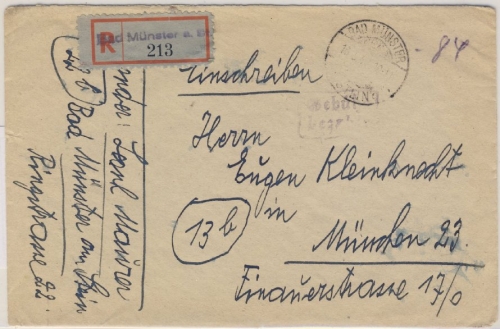 R
Bad Münster a. St
213
BAD MÜNSTER
84
Einschreiben
Gebühr
bezahlt
Herrn
Eugen Kleinknecht
in
13b
München 23.
Finauerstrasse 17/0
Maurer
Bad Münster am Stein
Ringstrasse 22.